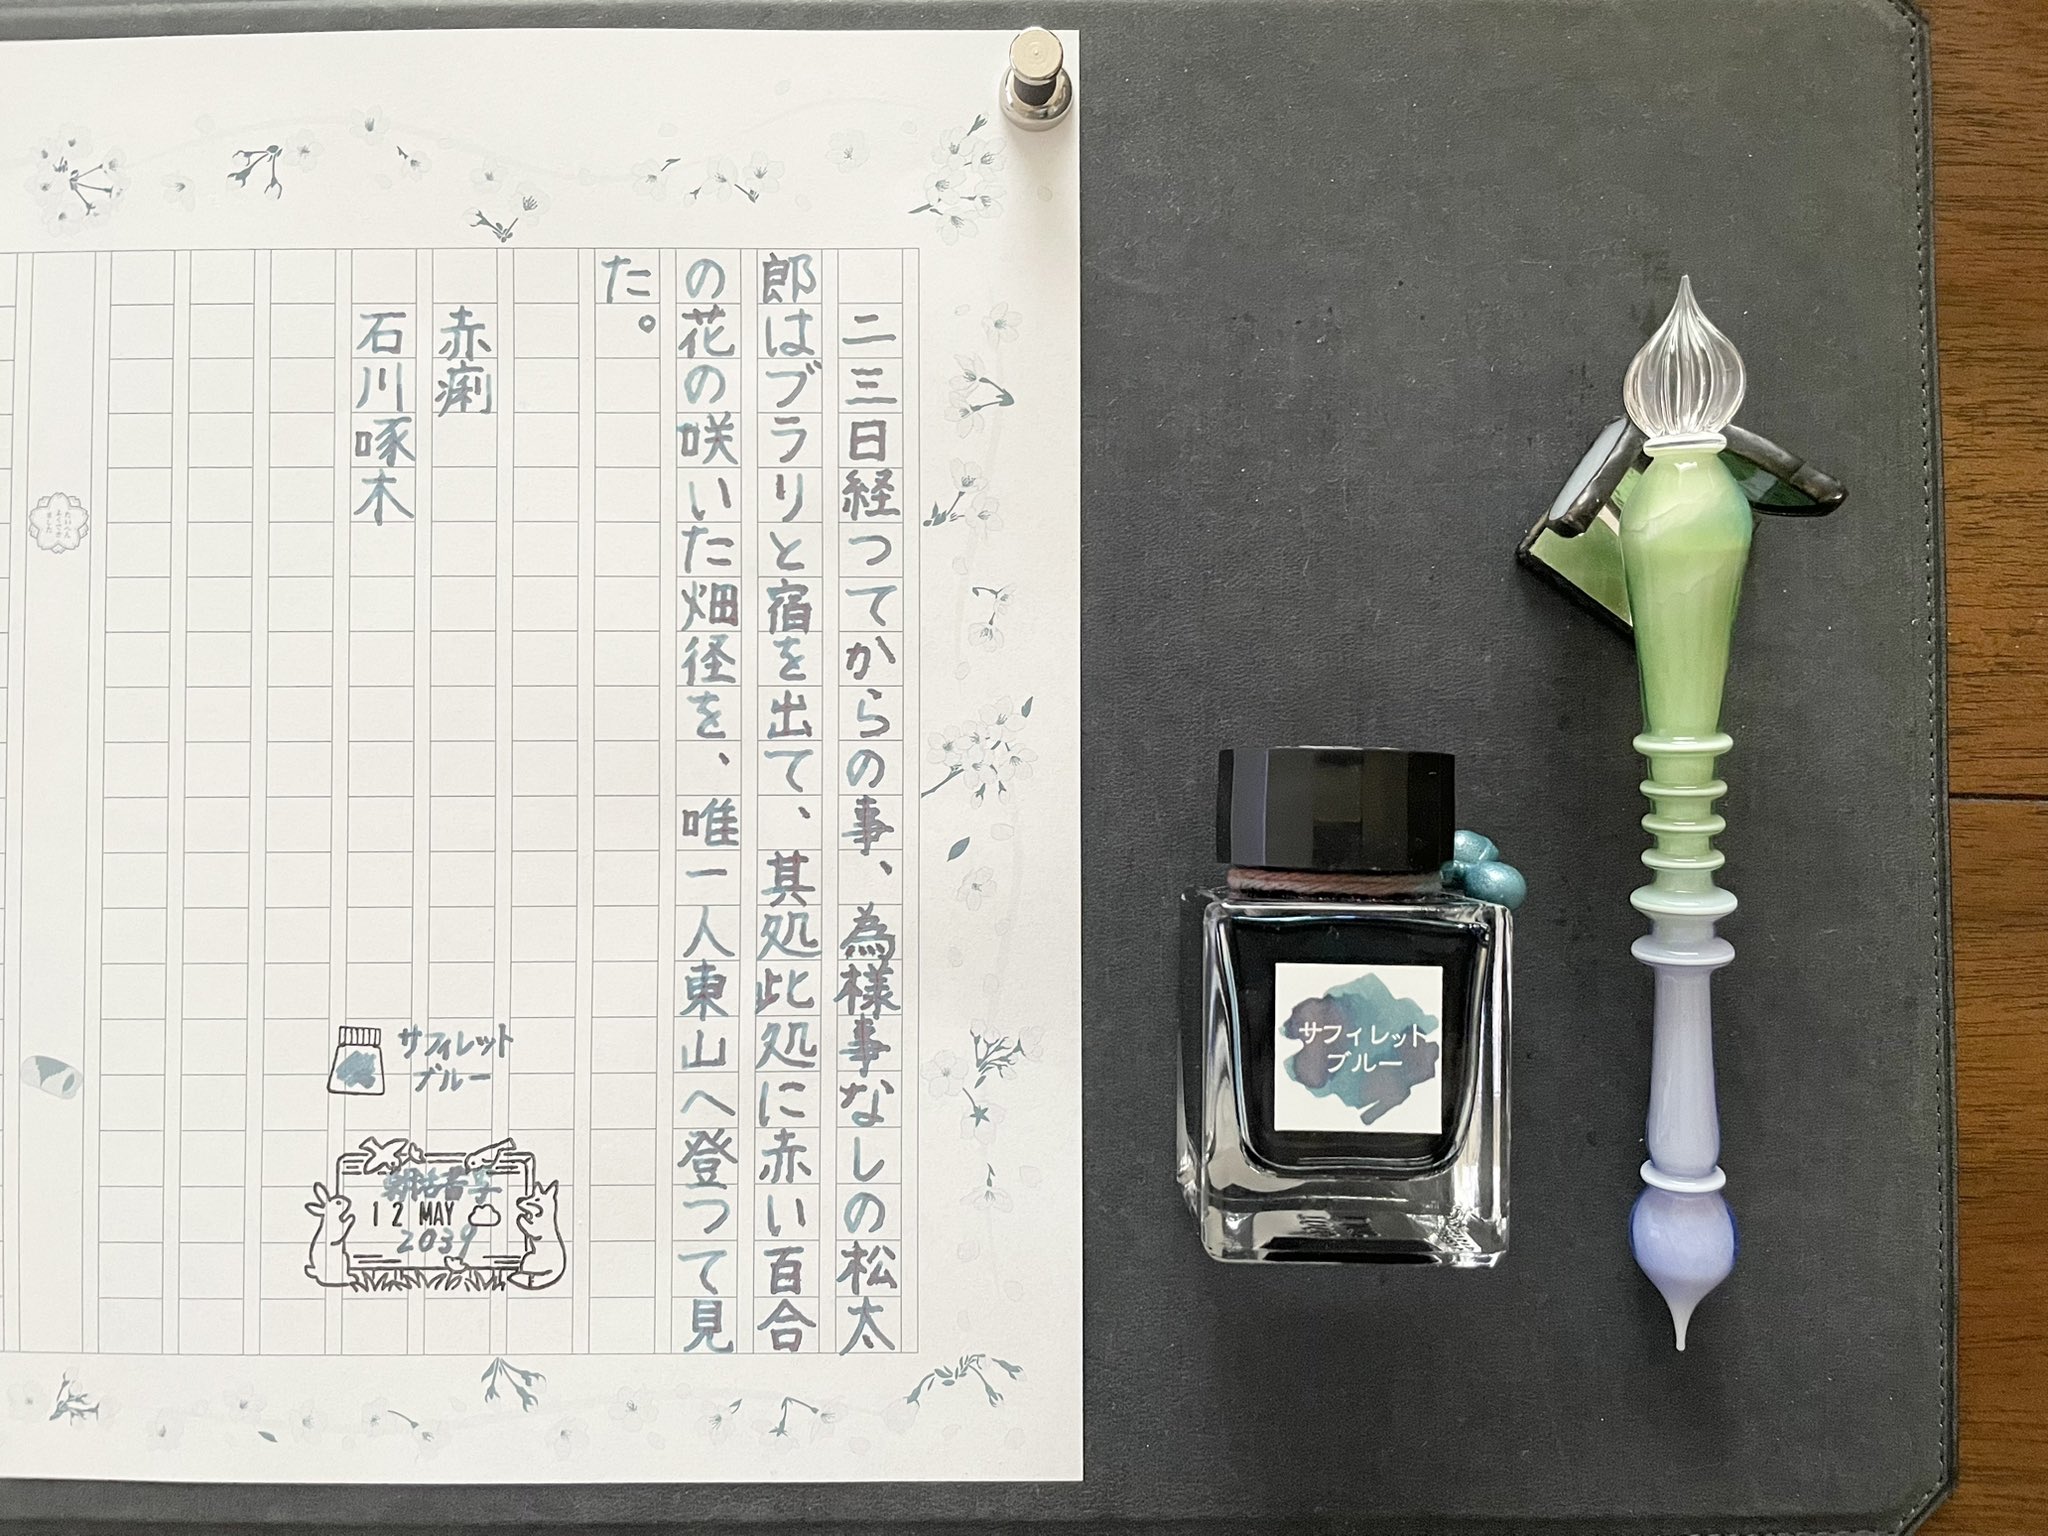 二三日経つてからの事、為様事なしの松太
郎はブラリと宿を出て、其処此処に赤い百合
の花の咲いた畑径を、唯一人東山へ登つて見
た。
赤痢
石川啄木
サフィレット
ブルー
朝活書写
12 MAY
2039
たいへん
よくでき
ました
サフィレット
ブルー